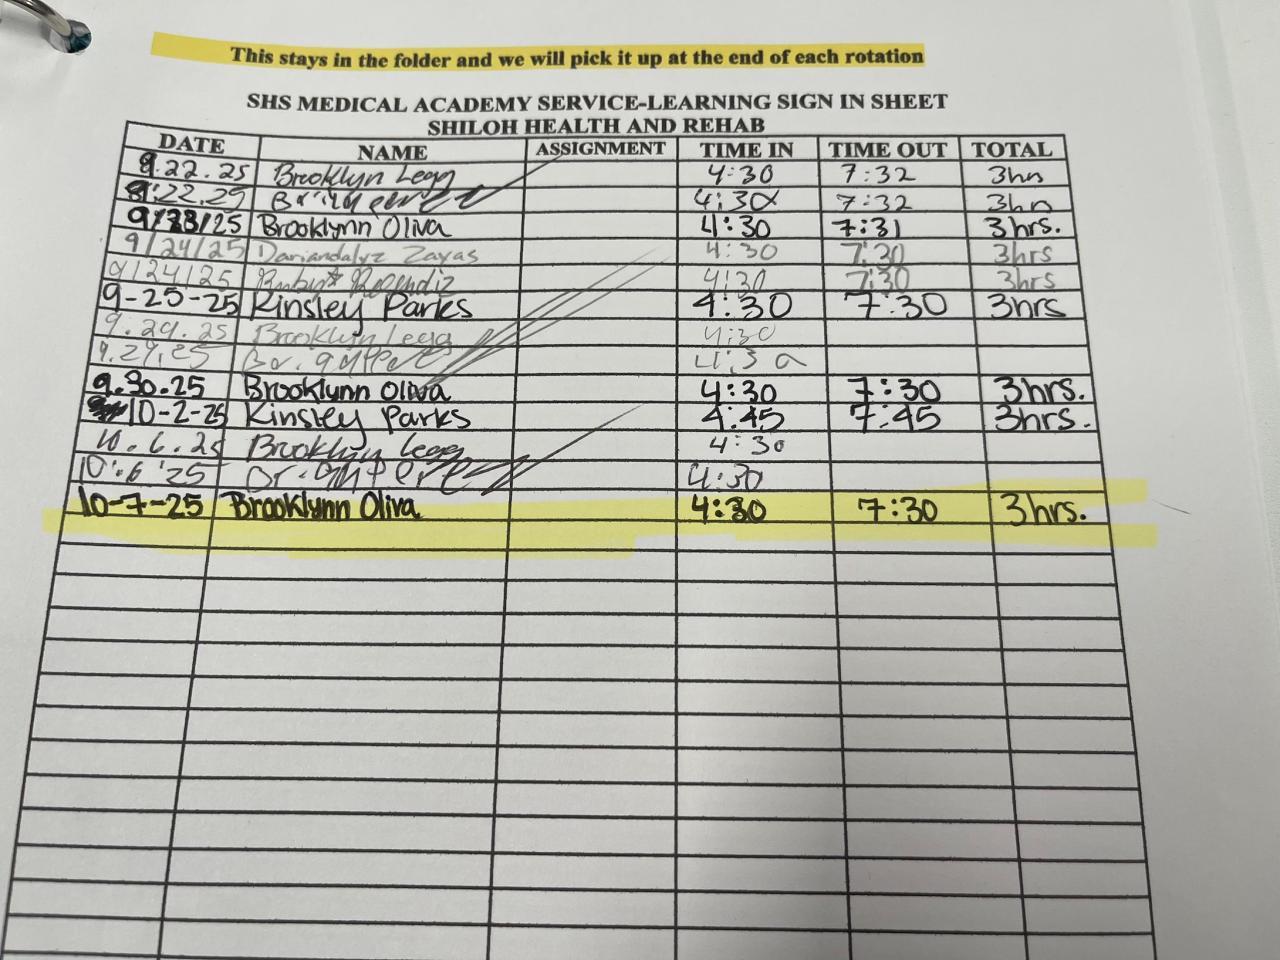 This stays in the folder and we will pick it up at the end of each rotation
SHS MEDICAL ACADEMY SERVICE-LEARNING SIGN IN SHEET
SHILOH HEALTH AND REHAB
DATE NAME ASSIGNMENT TIME IN TIME OUT TOTAL
9.22.25 Brooklyn Legg 4:30 7:32 3hr
4:30 7:32 3hr
9/23/25 Brooklynn Oliva 4:30 7:31 3hrs.
9/24/25 Dariandalyz Zayas 4:30 7:30 3hrs
9/24/25 Ruby Resendiz 4:30 7:30 3hrs
9-25-25 Kinsley Parks 4:30 7:30 3hrs
9.29.25 Brooklyn Legg 4:30
9.29.25 4:30
9.30.25 Brooklynn Oliva 4:30 7:30 3hrs.
10-2-25 Kinsley Parks 4:45 7:45 3hrs.
10.6.25 Brooklyn Legg 4:30
10.6.25 4:30
10-7-25 Brooklynn Oliva 4:30 7:30 3hrs.